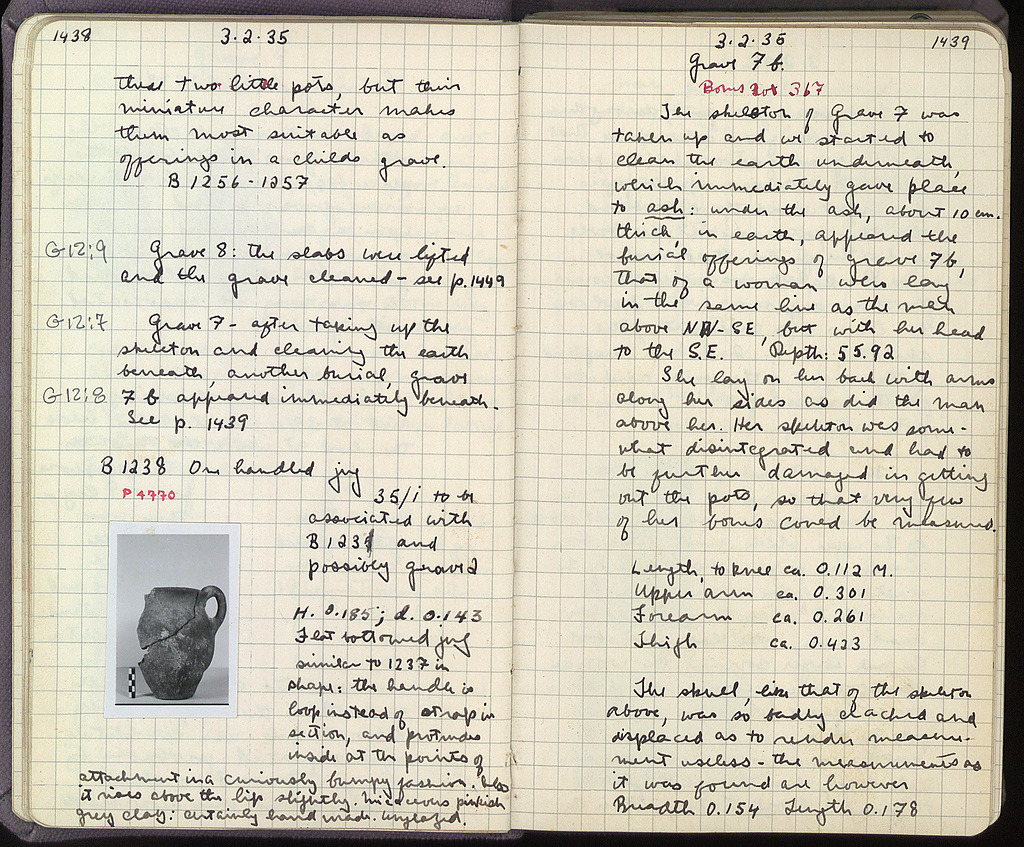 1438
3·2·35
these two little pots, but their
miniature character makes
them most suitable as
offerings in a childs grave.
B 1256 - 1257
G12:9 Grave 8: the slabs were lifted
and the grave cleaned - see p. 1449
G12:7 Grave 7 - after taking up the
skeleton and cleaning the earth
beneath, another burial, grave
G12:8 7b appeared immediately beneath.
See p. 1439
B 1238 One handled jug
P 4770
35/i to be
associated with
B 123 and
possibly grave 2
H. 0.185; d. 0.143
Flat bottomed jug
similar to 1237 in
shape: the handle is
loop instead of strap in
section, and protrudes
inside at the points of
attachment in a curiously bumpy fashion. Also
it rises above the lip slightly. Micaceous pinkish
grey clay: certainly hand made. Unglazed.
3·2·35
1439
Grave 7b.
Bones Lot 367
The skeleton of Grave 7 was
taken up and we started to
clean the earth underneath,
which immediately gave place
to ash: under the ash, about 10 cm.
thick, in earth, appeared the
burial offerings of grave 7b,
that of a woman who lay
in the same line as the man
above NW-SE, but with her head
to the S.E. Depth: 55.92
She lay on her back with arms
along her sides as did the man
above her. Her skeleton was some-
what disintegrated and had to
be further damaged in getting
out the pots, so that very few
of her bones could be measured.
Length, to knee ca. 0.112 M.
Upper arm ca. 0.301
Forearm ca. 0.261
Thigh ca. 0.433
The skull, like that of the skeleton
above, was so badly cracked and
displaced as to render measure-
ment useless - the measurements as
it was found are however
Breadth 0.154 Length 0.178